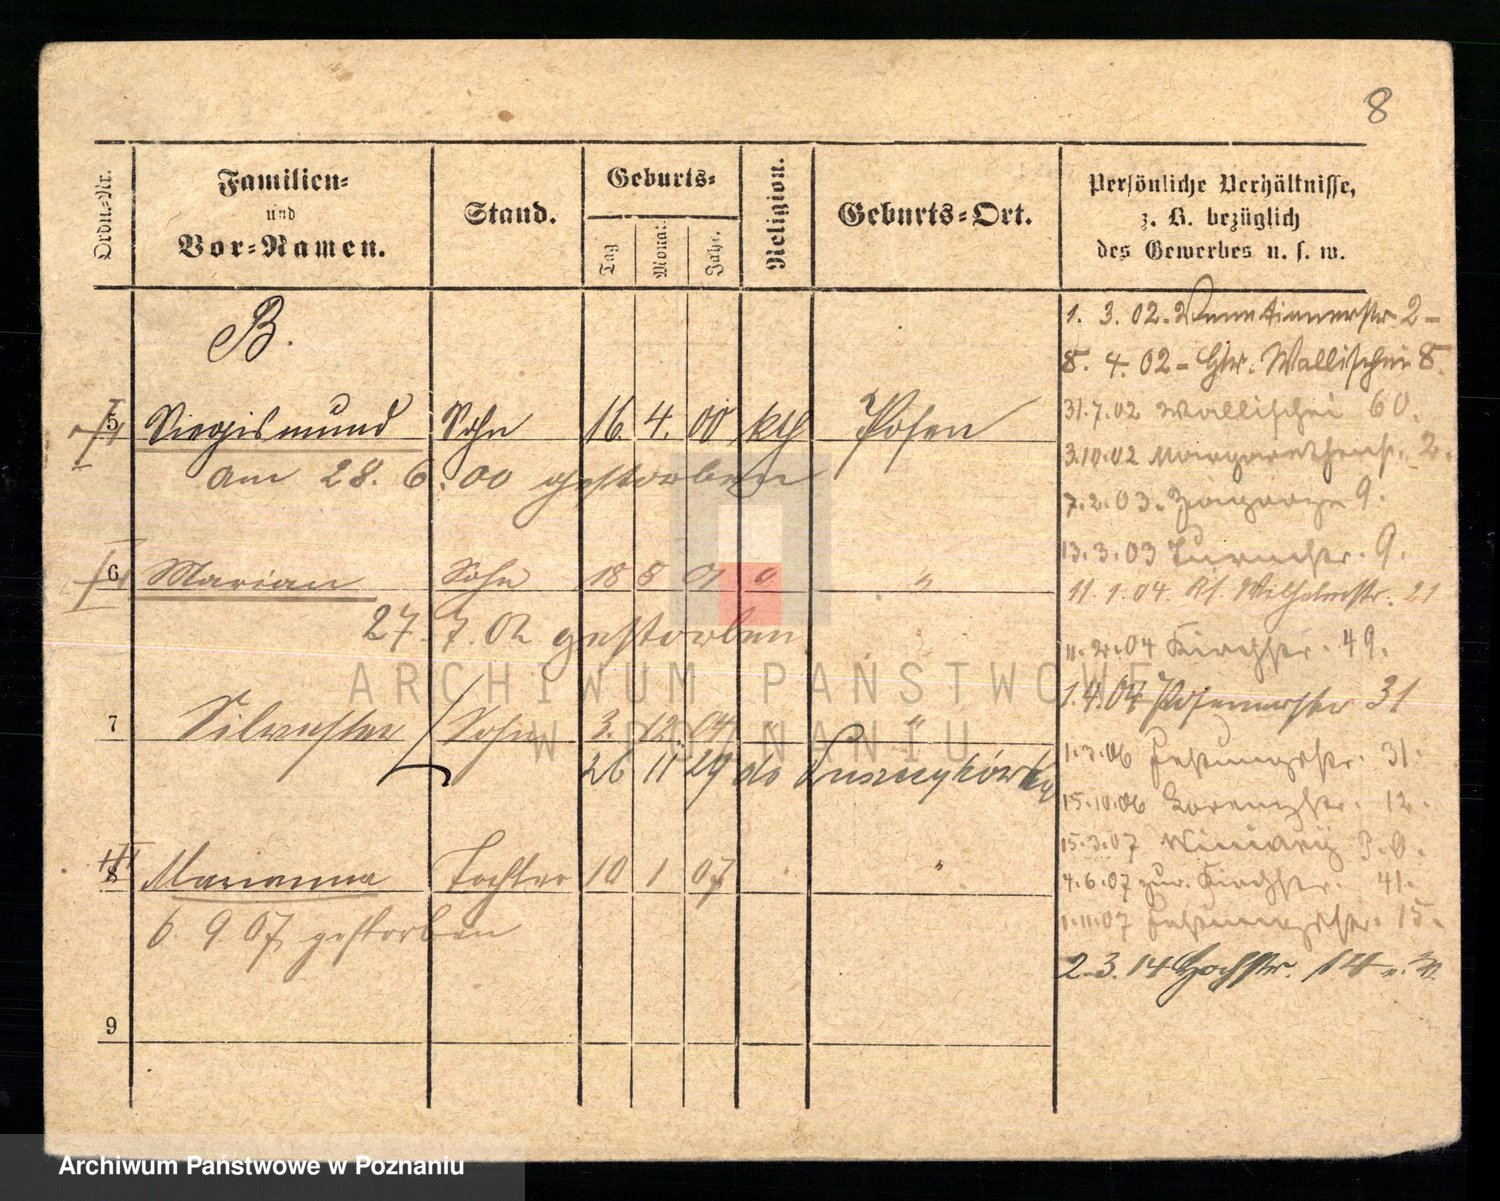 8
Ordn.-Nr.
Familien-
und
Vor-Namen.
Stand.
Geburts-
Tag
Monat
Jahr
Religion.
Geburts-Ort.
Persönliche Verhältnisse,
z. B. bezüglich
des Gewerbes u. s. w.
B.
5 Siegismund Sohn 16. 4. 00 kth Posen
am 28. 6. 00 gestorben
6 Marian Sohn 18 8 01 " "
27. 7. 02 gestorben
7 Silvester Sohn 3. 12. 04 " "
26 11 29 do
8 Marianna Tochter 10 1 07 "
6. 9. 07 gestorben
9
1. 3. 02. Venetianerstr 2
8. 4. 02 - Htr. Wallischei 8.
31.7.02 Wallischei 60.
3.10.02 Margarethenstr. 2.
7.2.03. Zagorze 9.
13.3.03 Turmstr. 9.
11. 1. 04. Kl. Wilhelmstr. 21
04 Kirchstr. 49.
1.4.04 Posenerstr 31
1.3.06 Festungsstr. 31.
15.10.06 Lorenzstr. 12.
15.3.07
4.6.07 zur. Kirchstr. 41.
1.11.07 Festungsstr. 15.
2.3.14 Hochstr. 14
ARCHIWUM PAŃSTWOWE
W POZNANIU
Archiwum Państwowe w Poznaniu